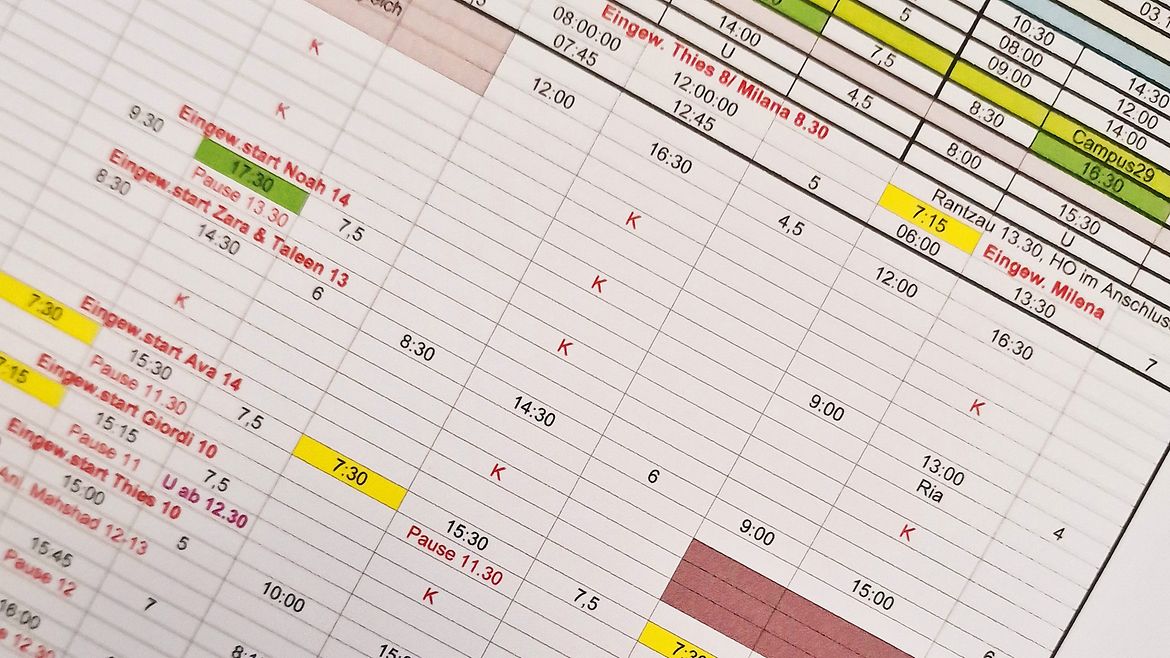 K
K
9:30
Eingew.start Noah 14
17:30
Pause 13.30
7,5
8:30
Eingew.start Zara & Taleen 13
14:30
6
K
7:30
Eingew.start Ava 14
15:30
Pause 11.30
7,5
7:15
Eingew.start Giordi 10
15:15
Pause 11
7,5
U ab 12.30
Eingew.start Thies 10
15:00
5
Mahshad 12-13
15:45
Pause 12
7
16:00
12.30
08:00:00
07:45
Eingew. Thies 8/ Milana 8.30
12:00:00
12:45
12:00
16:30
5
4,5
K
K
K
8:30
14:30
6
K
7:30
15:30
Pause 11.30
7,5
K
10:00
14:00
U
5
7,5
4,5
10:30
08:00
09:00
8:30
8:00
14:30
12:00
14:00
Campus29
16:30
15:30
U
7:15
06:00
Rantzau 13.30, HO im Anschlus
Eingew. Milena
13:30
12:00
16:30
7
K
9:00
13:00
Ria
4
K
9:00
15:00